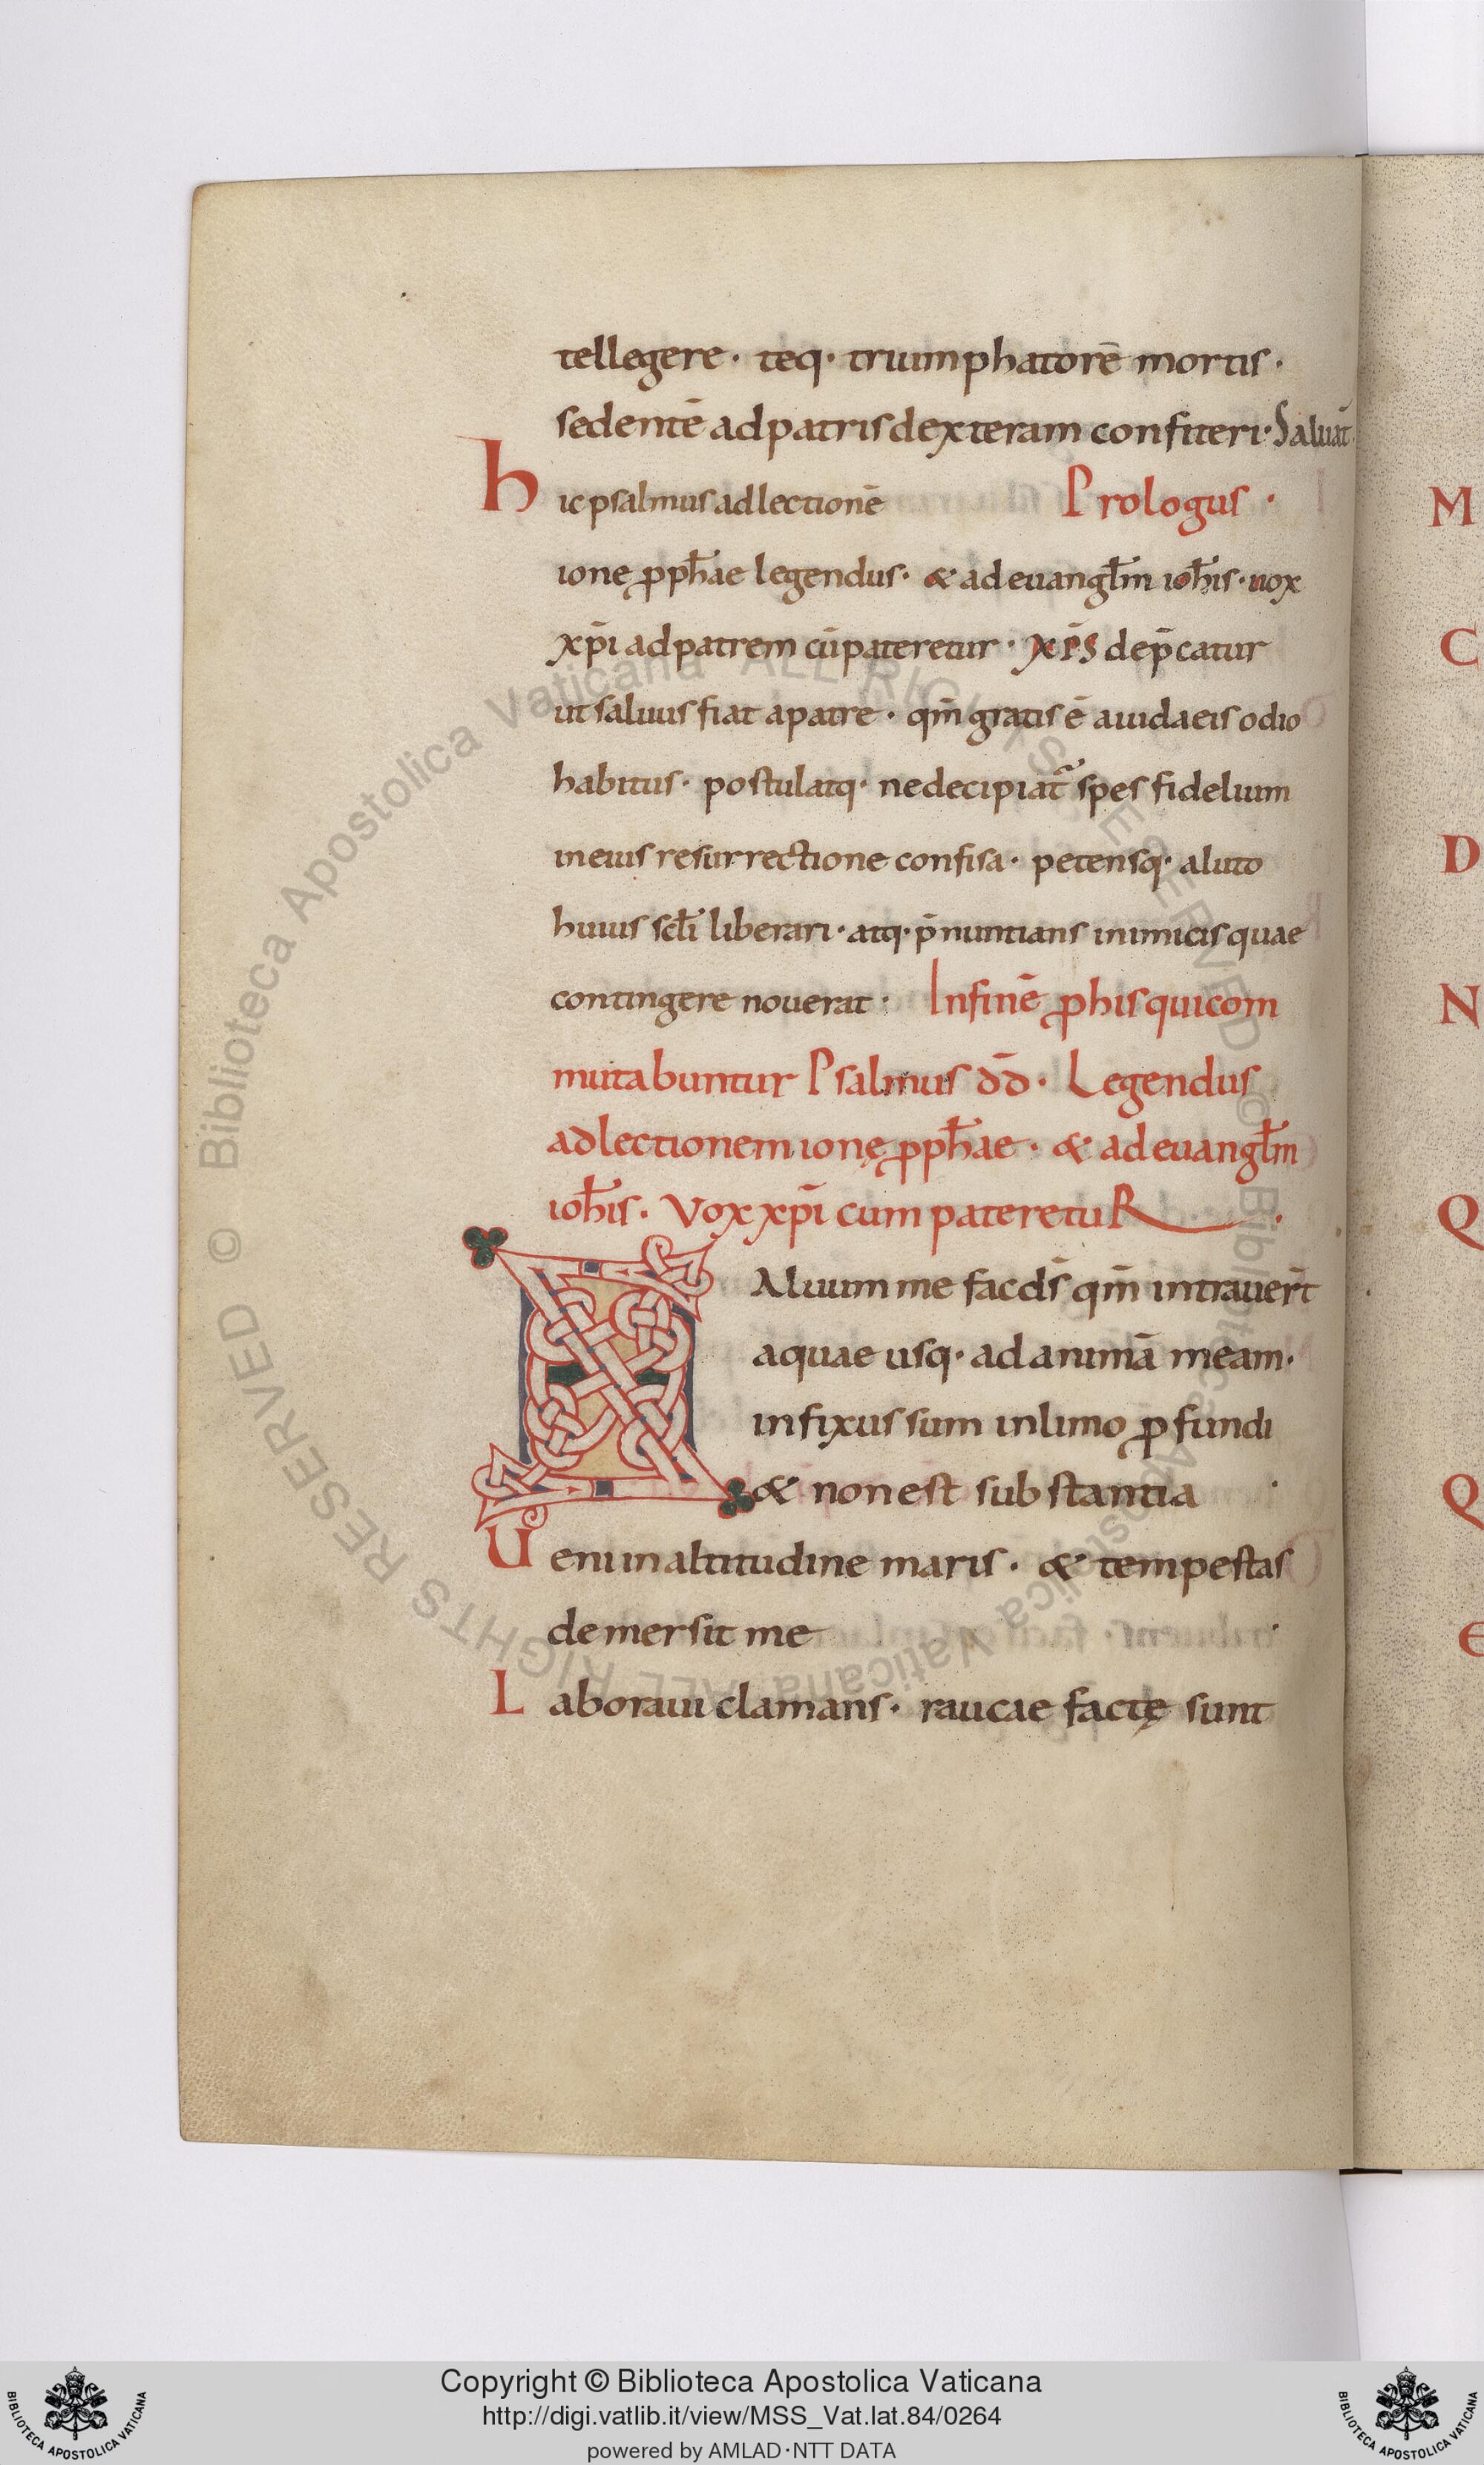 tellegere · teq· triumphatorē mortis ·
sedentē ad patris dexteram confiteri · Saluat̄
hic psalmus ad lectionē Prologus ·
ionę ꝓph̄ae legendus · & ad euangl̄m ioh̄is · uox
xp̄i ad patrem cū pateretur · xp̄s dep̄catur
ut saluus fiat a patre · qm̄ gratis ē a iudaeis odio
habitus · postulatq· ne decipiat᷑ spes fidelium
in eius resurrectione confisa · petensq· a luto
huius scl̄i liberari · atq· p̄nuntians inimicis quae
contingere nouerat · In finē ꝓ his qui com
mutabuntur Psalmus dd̄ · Legendus
ad lectionem ionę ꝓph̄ae · & ad euangl̄m
ioh̄is · Vox xp̄i cum pateretuR ·
SAluum me fac ds̄ qm̄ intrauer̄t
aquae usq· ad animā meam ·
infixus sum in limo ꝓfundi
& non est substantia ·
Ueni in altitudine maris · & tempestas
demersit me ·
Laboraui clamans · raucae factę sunt
M
C
D
N
Q
Q
E
© Biblioteca Apostolica Vaticana ALL RIGHTS RESERVED © Biblioteca Apostolica Vaticana ALL RIGHTS RESERVED
Copyright © Biblioteca Apostolica Vaticana
http://digi.vatlib.it/view/MSS_Vat.lat.84/0264
powered by AMLAD·NTT DATA
BIBLIOTECA APOSTOLICA VATICANA
BIBLIOTECA APOSTOLICA VATICANA